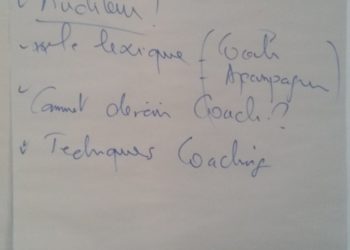 le lexique ( Coach
- Accompagner )
Comment devenir Coach ?
Techniques Coaching